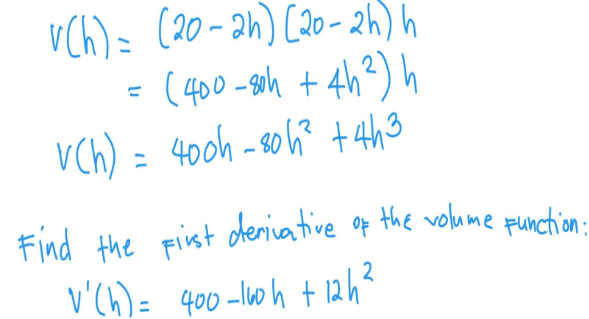 V(h) = (20 - 2h)(20 - 2h) h
= (400 - 80h + 4h²) h
V(h) = 400h - 80h² + 4h³
Find the first derivative of the volume function:
V'(h) = 400 - 160h + 12h²